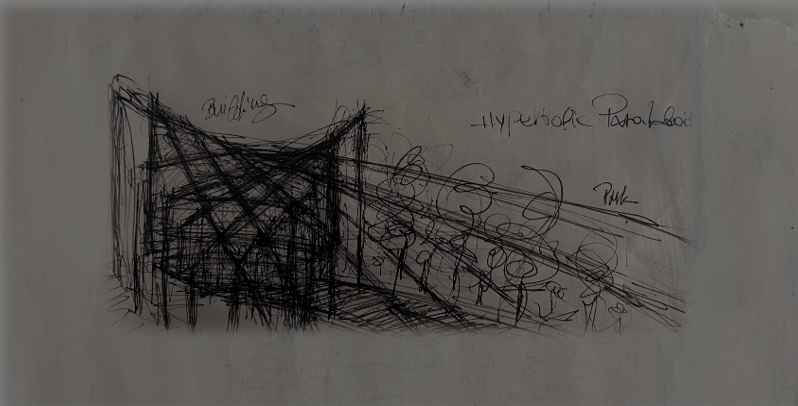 Building
Hyperbolic Paraboloid
Park